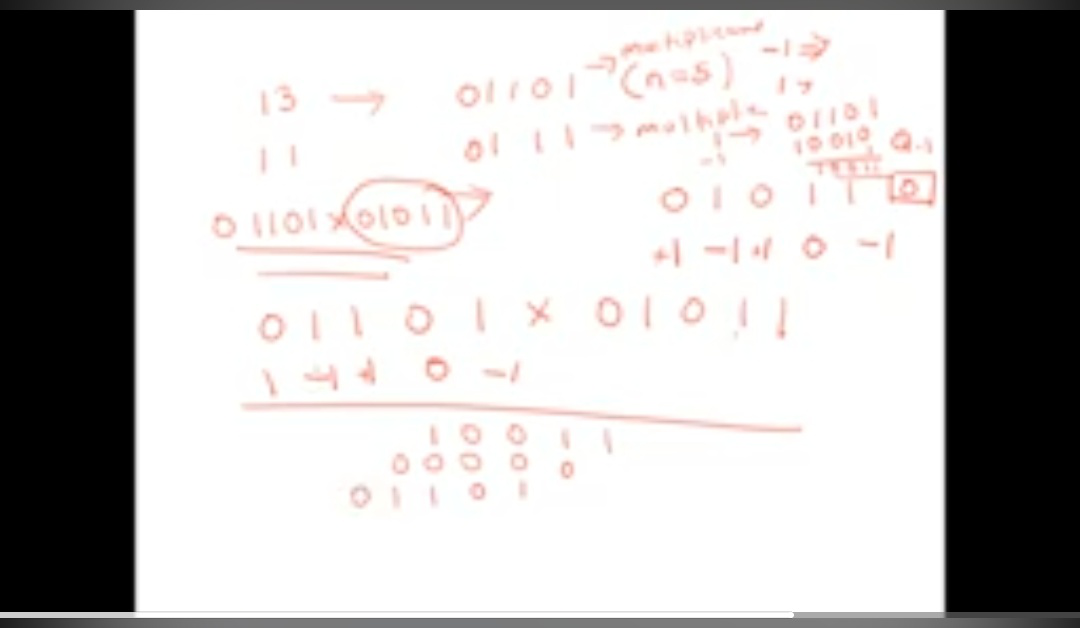 13 → 01101 → multiplicand (n=5) -1 ⇒
11 01 11 → multiple 1 → 01101
-1 10010 Q-1
10011
0 1 0 1 1 0
01101 x 01011 →
+1 -1 +1 0 -1
0 1 1 0 1 x 0 1 0 1 1
1 -1 +1 0 -1
1 0 0 1 1
0 0 0 0 0
0 1 1 0 1